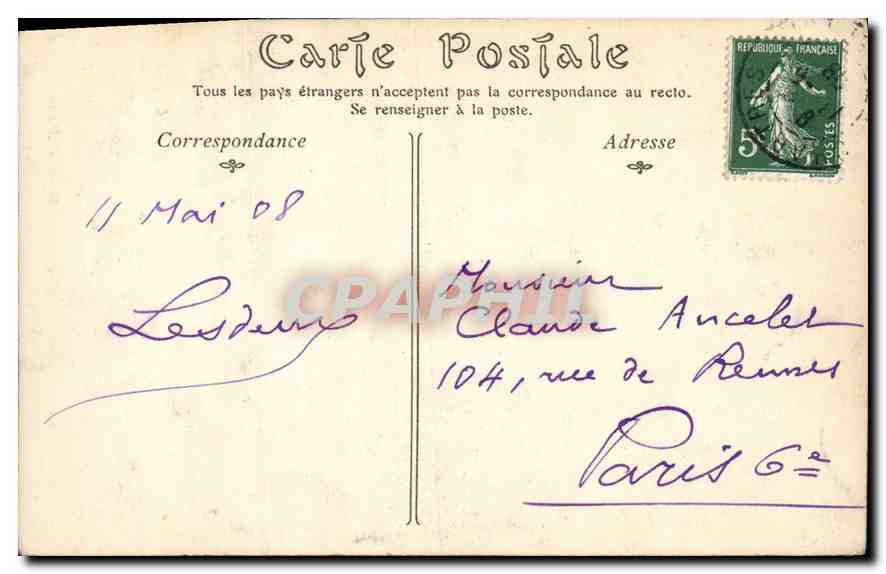 Carte Postale
Tous les pays étrangers n'acceptent pas la correspondance au recto.
Se renseigner à la poste.
Correspondance
Adresse
RÉPUBLIQUE FRANÇAISE
5
POSTES
11 Mai 08
Lesdeux
CPAPHIL
Monsieur
Claude Ancelet
104, rue de Rennes
Paris 6e